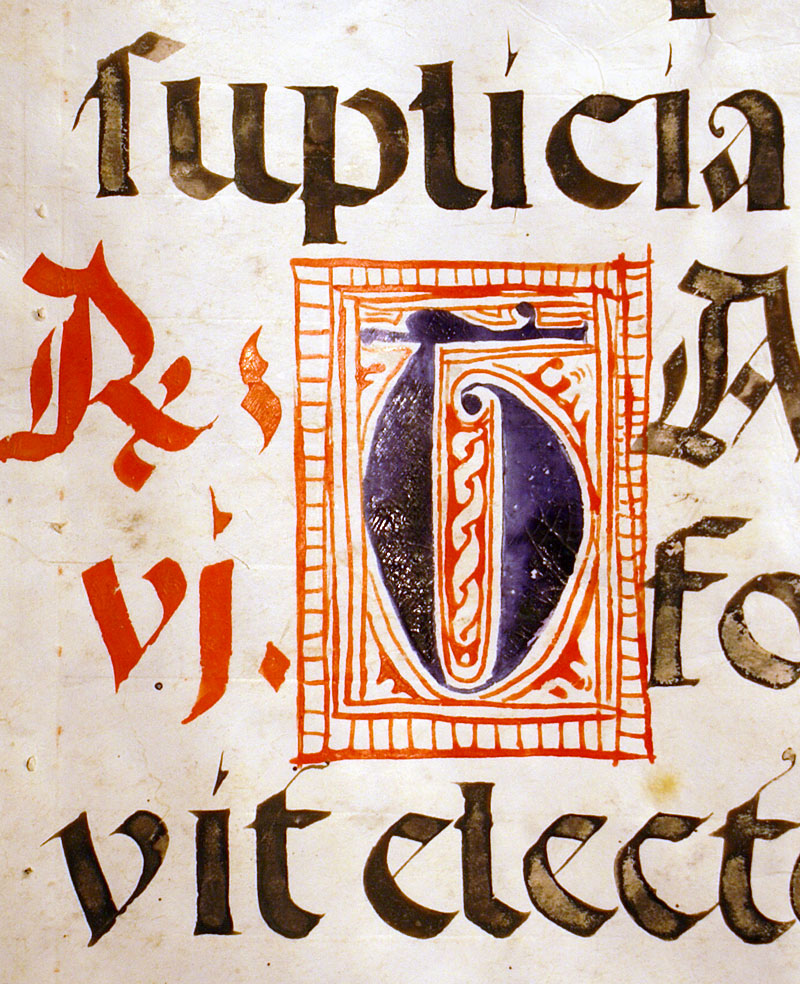 ſuplicia
℟ : T A
vj. fo
vit electo